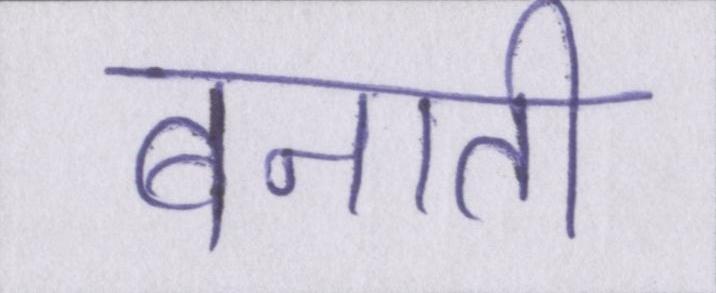 बनाती